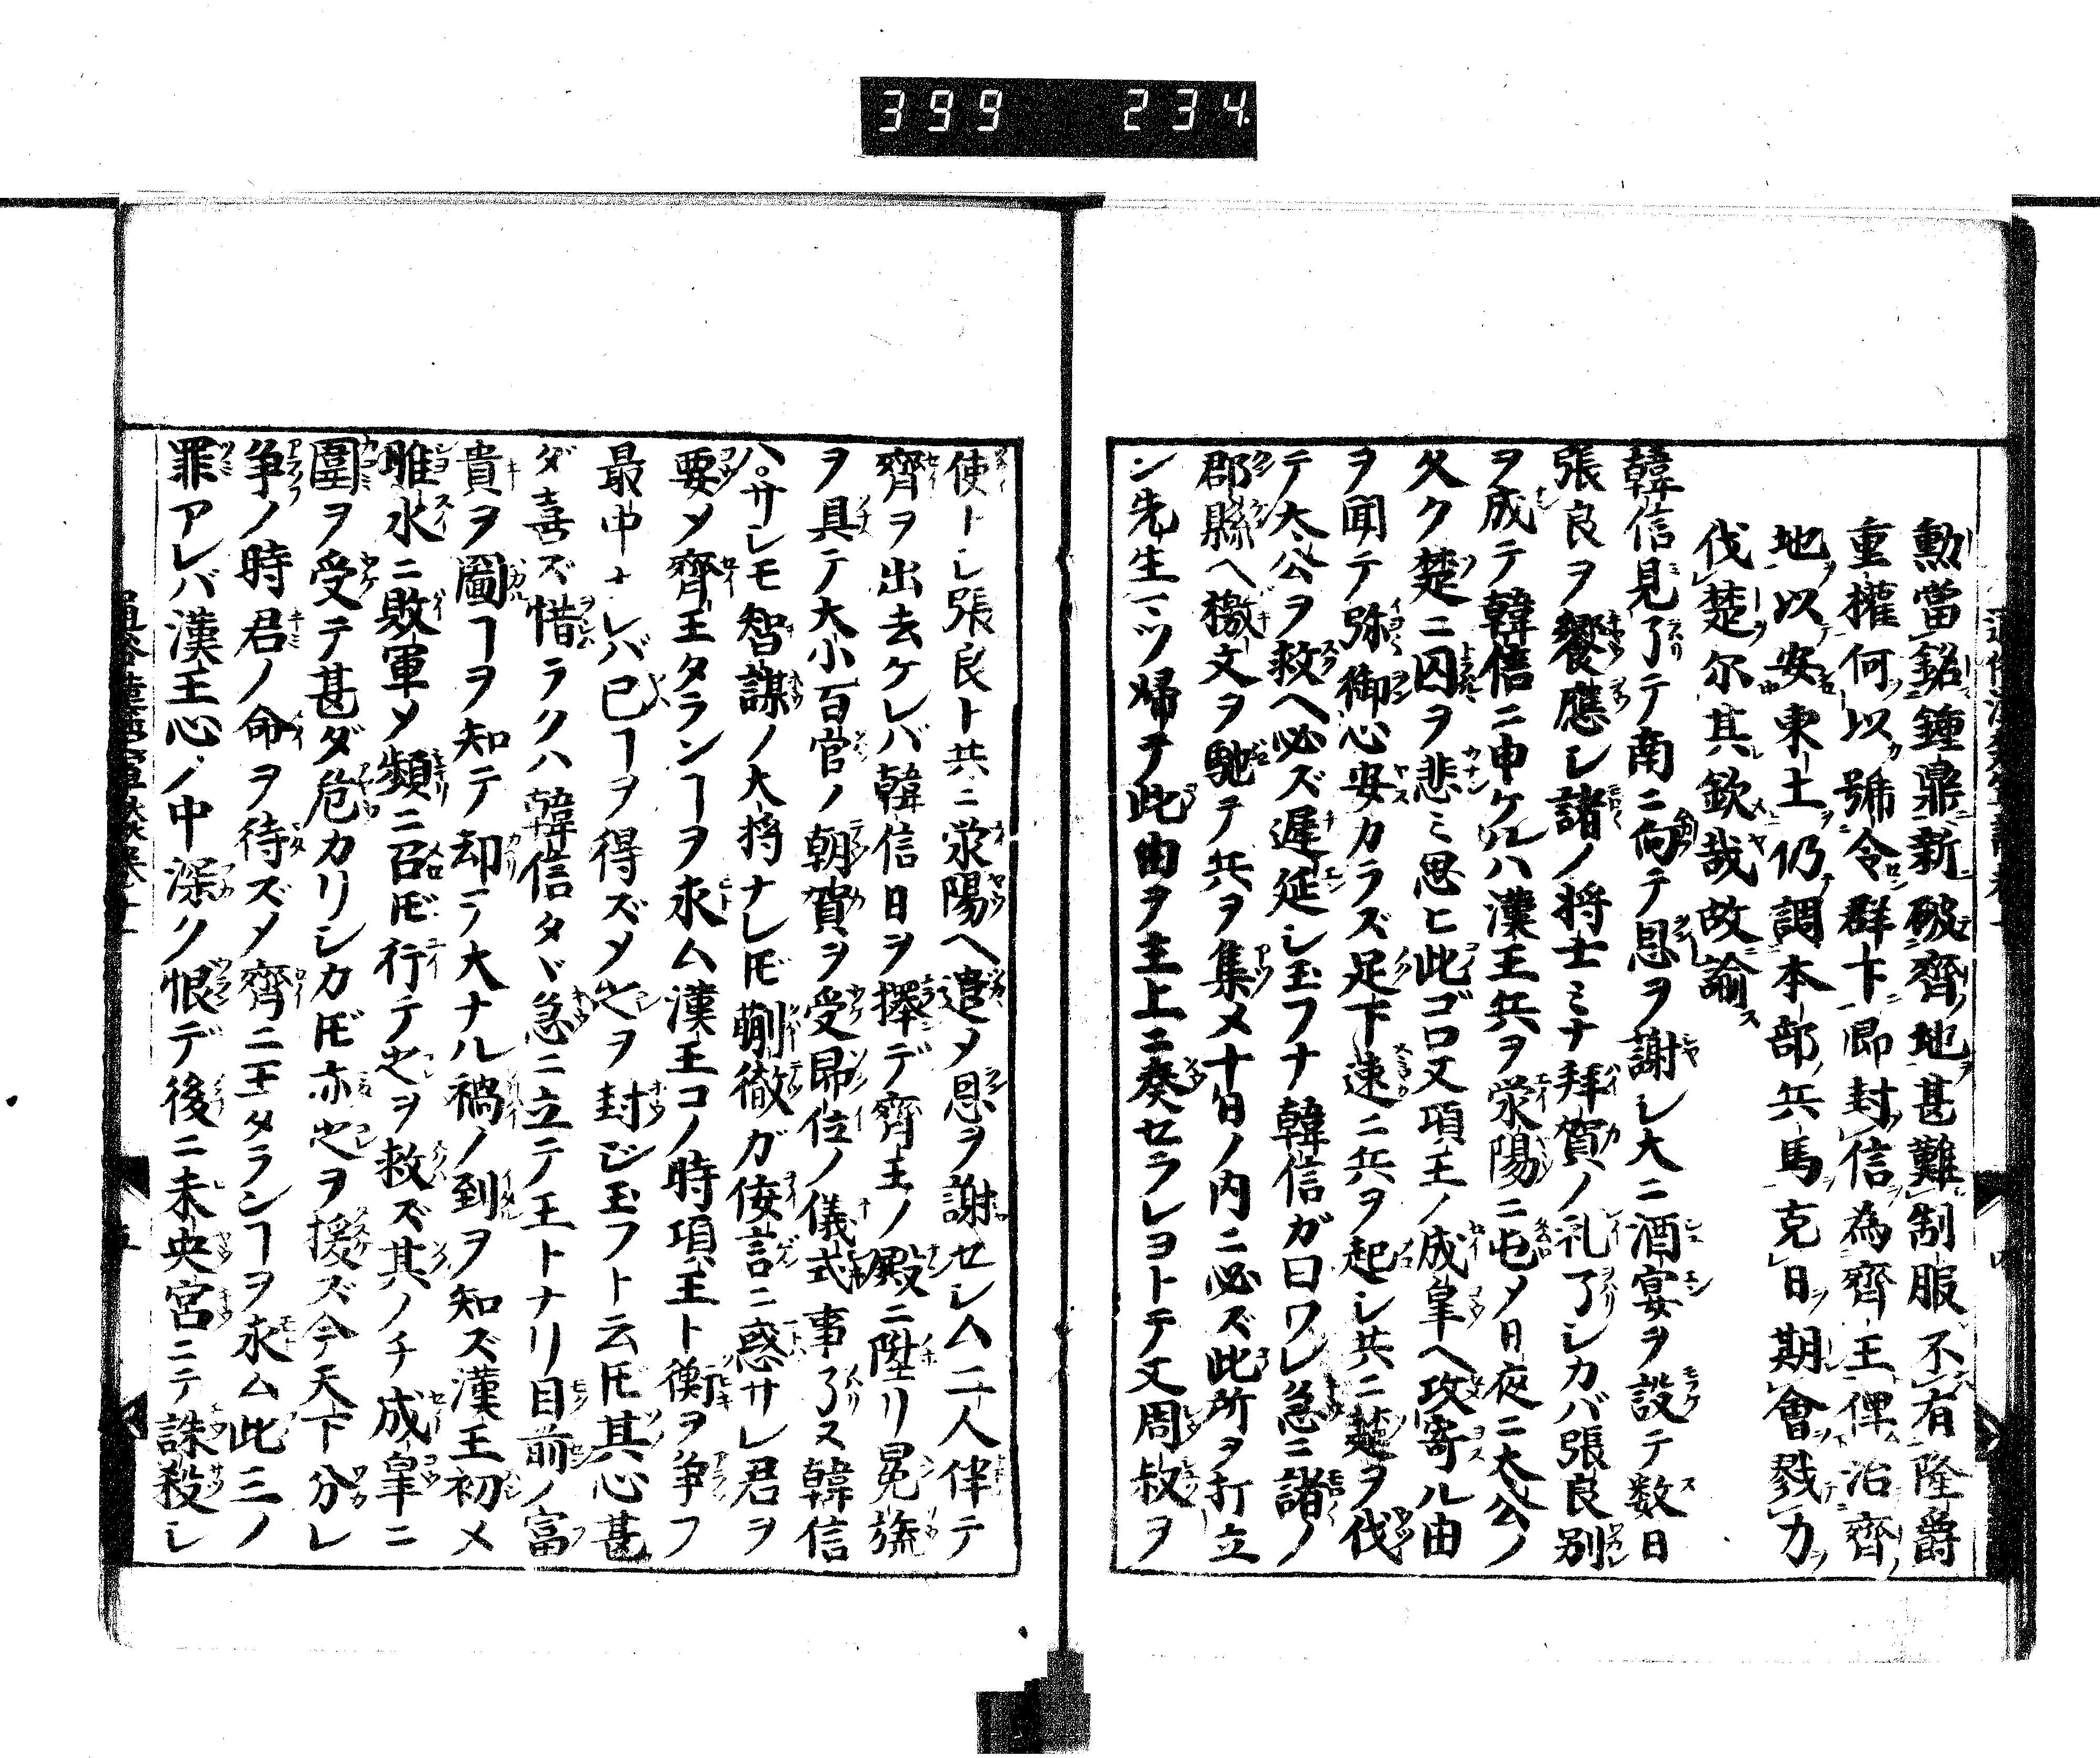 399 234
勲當銘鍾鼎新破齊地甚難制服不有隆爵
重權何以號令群下即封信為齊王俾治齊
地以安東土仍調本部兵馬克日期會戮力
伐楚尓其欽哉故諭
韓信見了テ南ニ向テ恩ヲ謝シ大ニ酒宴ヲ設テ数日
張良ヲ饗應シ諸ノ将士ミナ拜賀ノ礼了シカバ張良別
ヲ成テ韓信ニ申ケルハ漢王兵ヲ滎陽ニ屯メ日夜ニ太公ノ
久ク楚ニ囚ヲ悲ミ思ヒ此ゴロ又項王ノ成皐ヘ攻寄ル由
ヲ聞テ弥御心安カラズ足下速ニ兵ヲ起シ共ニ楚ヲ伐
テ太公ヲ救ヘ必ズ遅延シ玉フナ韓信ガ曰ワレ急ニ諸ノ
郡縣ヘ檄文ヲ馳テ兵ヲ集メ十日ノ内ニ必ズ此所ヲ打立
ン先生一ツ帰テ此由ヲ主上ニ奏セラレヨトテ又周叔ヲ
使トシ張良ト共ニ滎陽ヘ遣メ恩ヲ謝セシム二人伴テ
齊ヲ出去ケレバ韓信日ヲ擇デ齊王ノ殿ニ陞リ冕旒
ヲ具テ大小百官ノ朝賀ヲ受即位ノ儀式事了ヌ韓信
ハサレモ智謀ノ大将ナレ𪜈蒯徹ガ侫言ニ惑サレ君ヲ
要メ齊王タランヿヲ求ム漢王コノ時項王ト衡ヲ争フ
最中ナレバ已ヿヲ得ズメ之ヲ封ジ玉フト云𪜈其心甚
ダ喜ズ惜ラクハ韓信タヾ急ニ立テ王トナリ目前ノ富
貴ヲ圖ヿヲ知テ却テ大ナル禍ノ到ヲ知ズ漢王初メ
睢水ニ敗軍メ頻ニ召𪜈行テ之ヲ救ズ其ノチ成皐ニ
圍ヲ受テ甚ダ危カリシカ𪜈亦之ヲ援ズ今天下分レ
争ノ時君ノ命ヲ待ズメ齊ニ王タランヿヲ求ム此三ノ
罪アレバ漢王心ノ中深ク恨デ後ニ未央宮ニテ誅殺シ